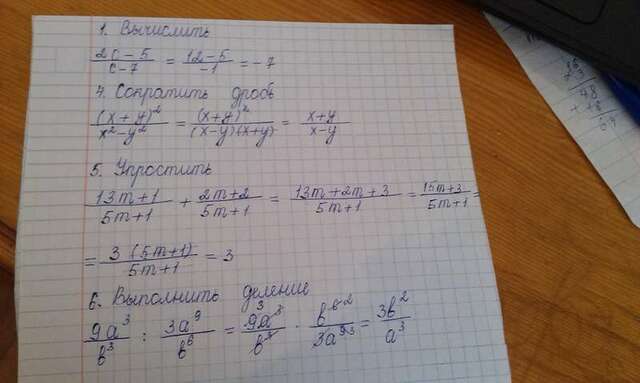 1. Вычислить
2c-5/c-7 = 12-5/-1 = -7
4. Сократить дробь
(x+y)²/x²-y² = (x+y)²/(x-y)(x+y) = x+y/x-y
5. Упростить
13m+1/5m+1 + 2m+2/5m+1 = 13m+2m+3/5m+1 = 15m+3/5m+1 =
= 3(5m+1)/5m+1 = 3
6. Выполнить деление
9a³/b³ : 3a⁹/b⁶ = 9a³/b · b²/3a = 3b²/a³
48
64